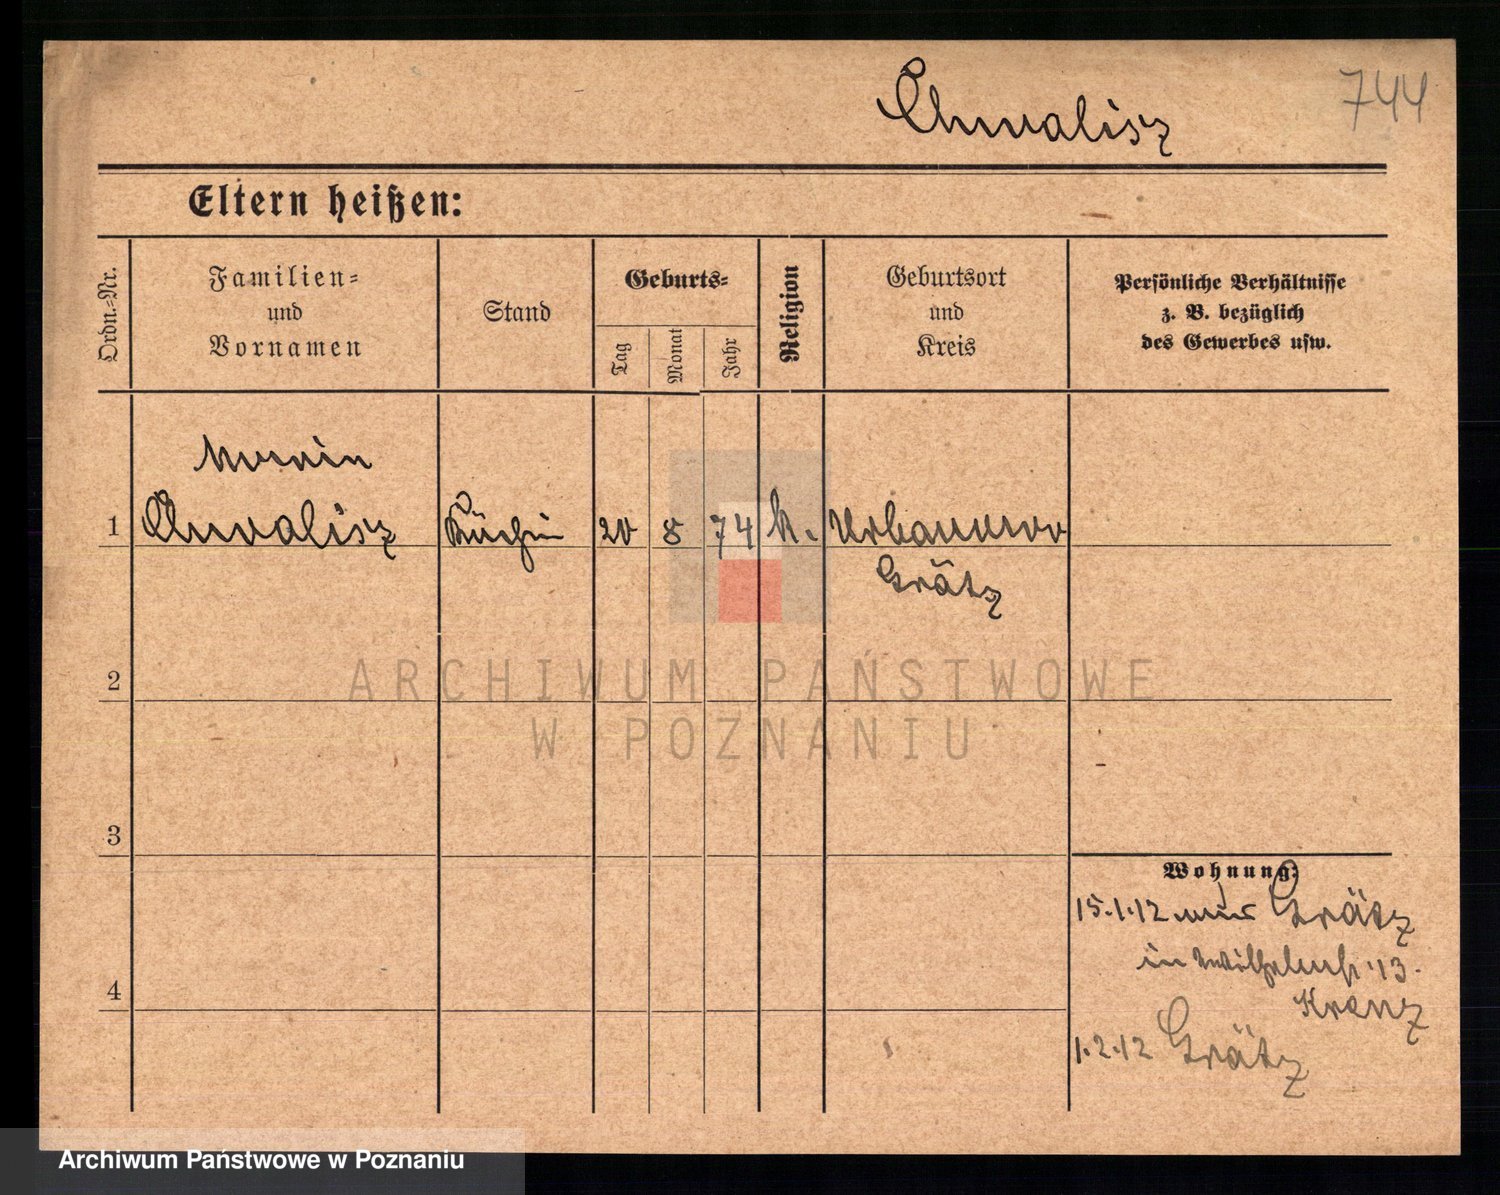 Chwalisz
744
Eltern heißen:
Ordn.-Nr.
Familien-
und
Vornamen
Stand
Geburts-
Tag
Monat
Jahr
Religion
Geburtsort
und
Kreis
Persönliche Verhältnisse
z. B. bezüglich
des Gewerbes usw.
1
Chwalisz
Köchin
20
8
74
k.
Urbanowo
Grätz
ARCHIWUM PAŃSTWOWE
W POZNANIU
2
3
4
Wohnung:
15.1.12 aus Grätz
in Wilhelmstr 13.
Krenz
1.2.12 Grätz
Archiwum Państwowe w Poznaniu